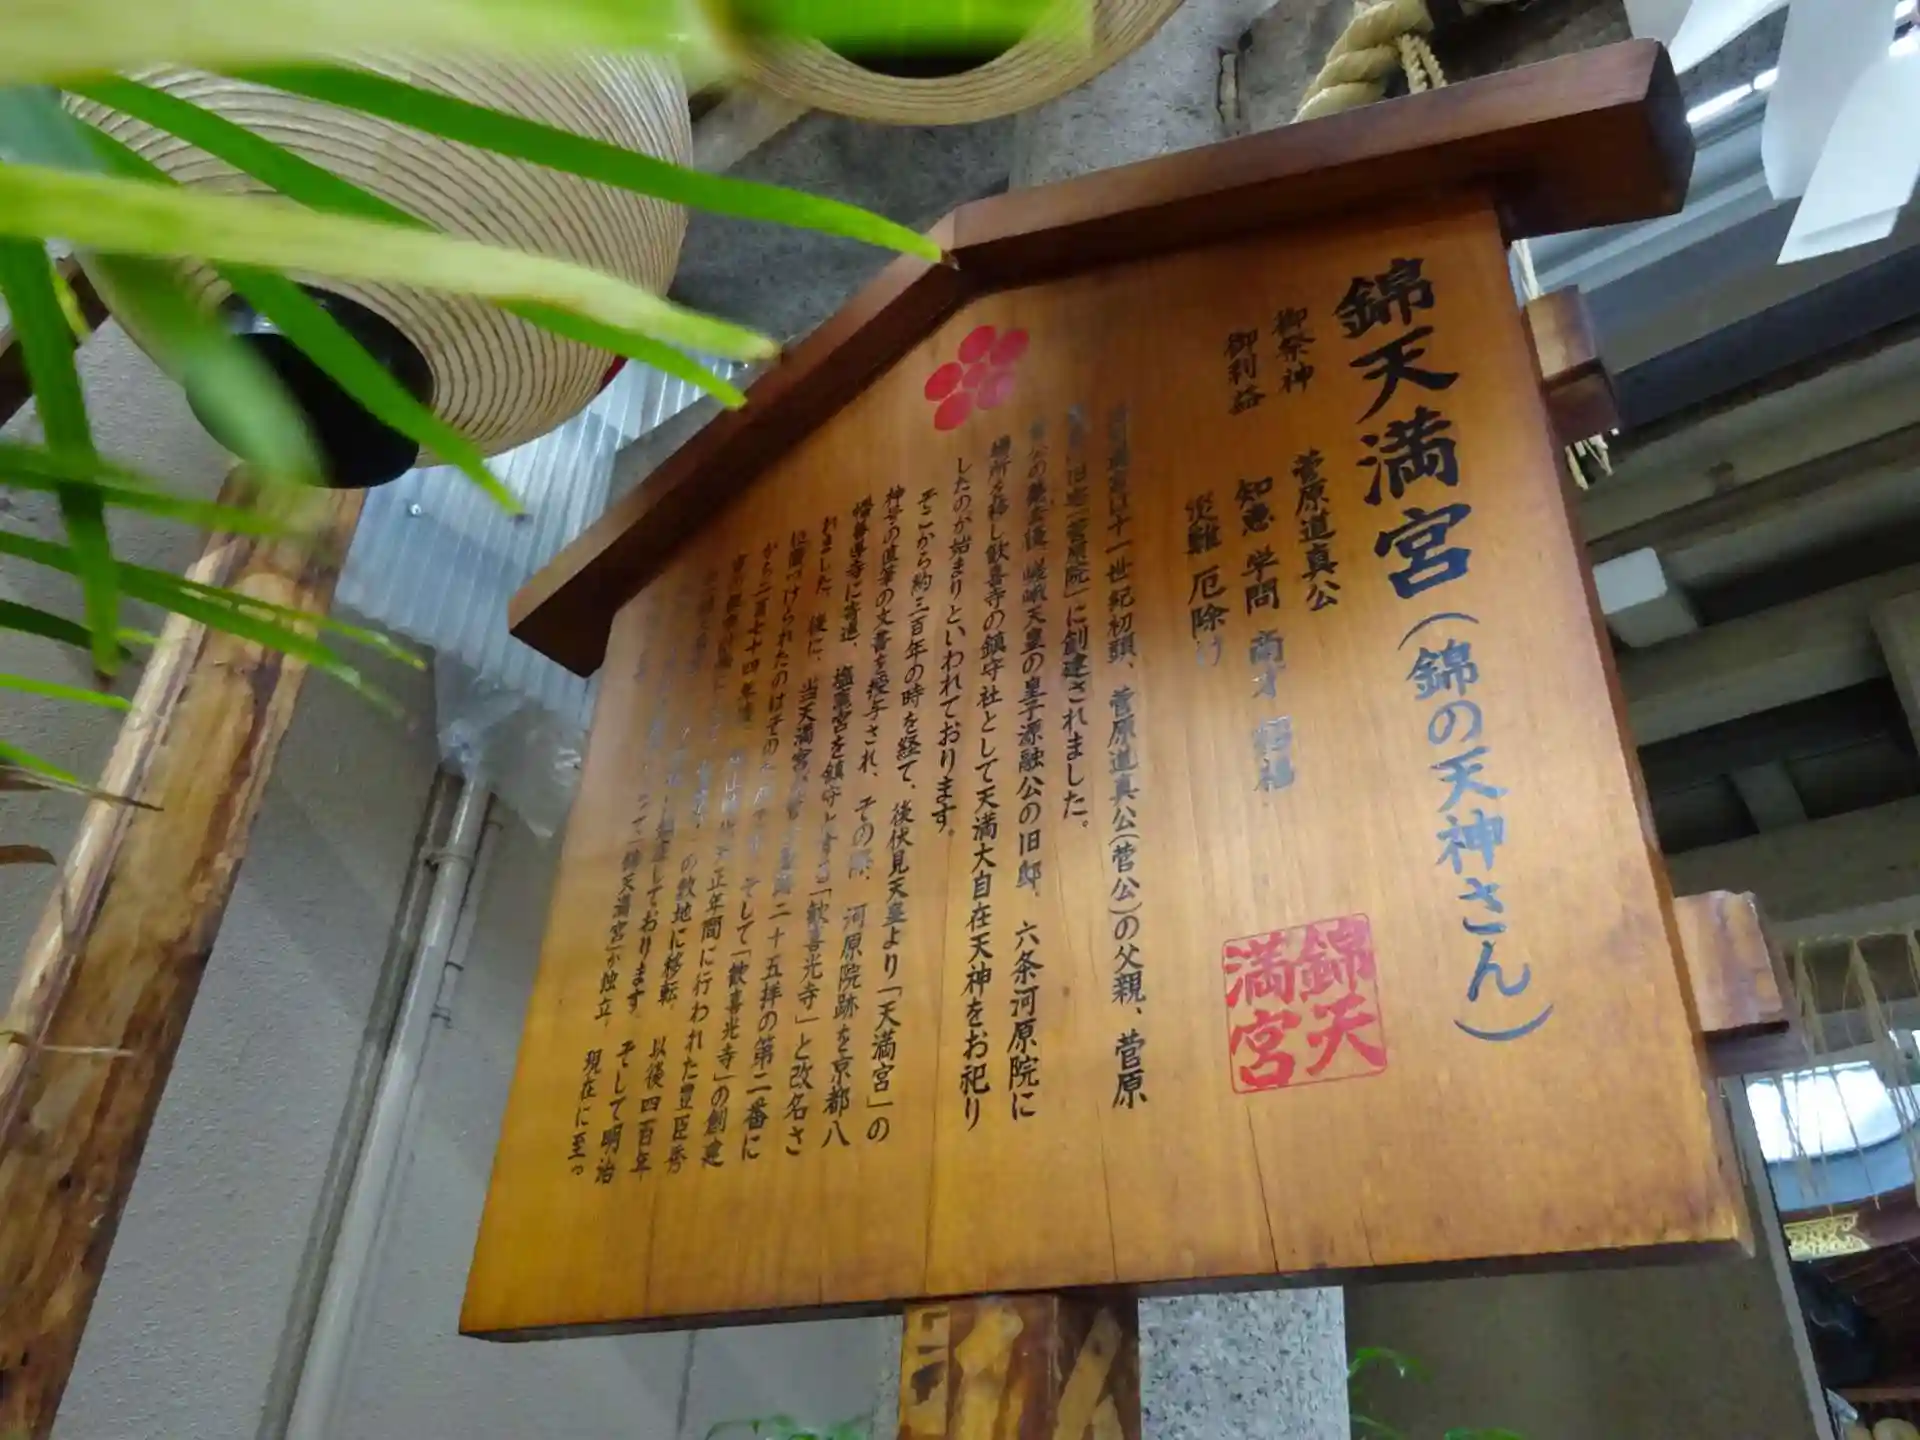 錦天満宮（錦の天神さん）
御祭神 菅原道真公
御利益 知恵 学問 商才 招福
災難 厄除け
錦天
満宮
は十一世紀初頭、菅原道真公(菅公)の父親、菅原
旧宅「菅原院」に創建されました。
の 後 嵯峨天皇の皇子源融公の旧邸、六条河原院に
場所を移し歓喜寺の鎮守社として天満大自在天神をお祀り
したのが始まりといわれております。
そこから約三百年の時を経て、後伏見天皇より「天満宮」の
神号の直筆の文書を授与され、その際、河原院跡を京都八
幡善導寺に寄進、塩竈宮を鎮守とする「歓喜光寺」と改名さ
れました。後に、当天満宮が 二十五拝の第二番に
位置づけられたのはその そして「歓喜光寺」の創建
から二百七十四年後、 天正年間に行われた豊臣秀
の敷地に移転、以後四百年
しております。そして明治
て「錦天満宮」が独立、現在に至っ